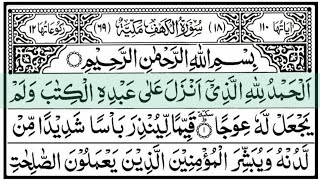 اٰيَاتُهَا ١١٠ (١٨) سُوْرَةُ الْكَهْفِ مَكِّيَّةٌ (٦٩) رُكُوْعَاتُهَا ١٢
بِسْمِ اللهِ الرَّحْمٰنِ الرَّحِيْمِ
اَلْحَمْدُ لِلّٰهِ الَّذِيْۤ اَنْزَلَ عَلٰى عَبْدِهِ الْكِتٰبَ وَلَمْ
يَجْعَلْ لَّهٗ عِوَجًا ۝١ قَيِّمًا لِّيُنْذِرَ بَاْسًا شَدِيْدًا مِّنْ
لَّدُنْهُ وَيُبَشِّرَ الْمُؤْمِنِيْنَ الَّذِيْنَ يَعْمَلُوْنَ الصّٰلِحٰتِ